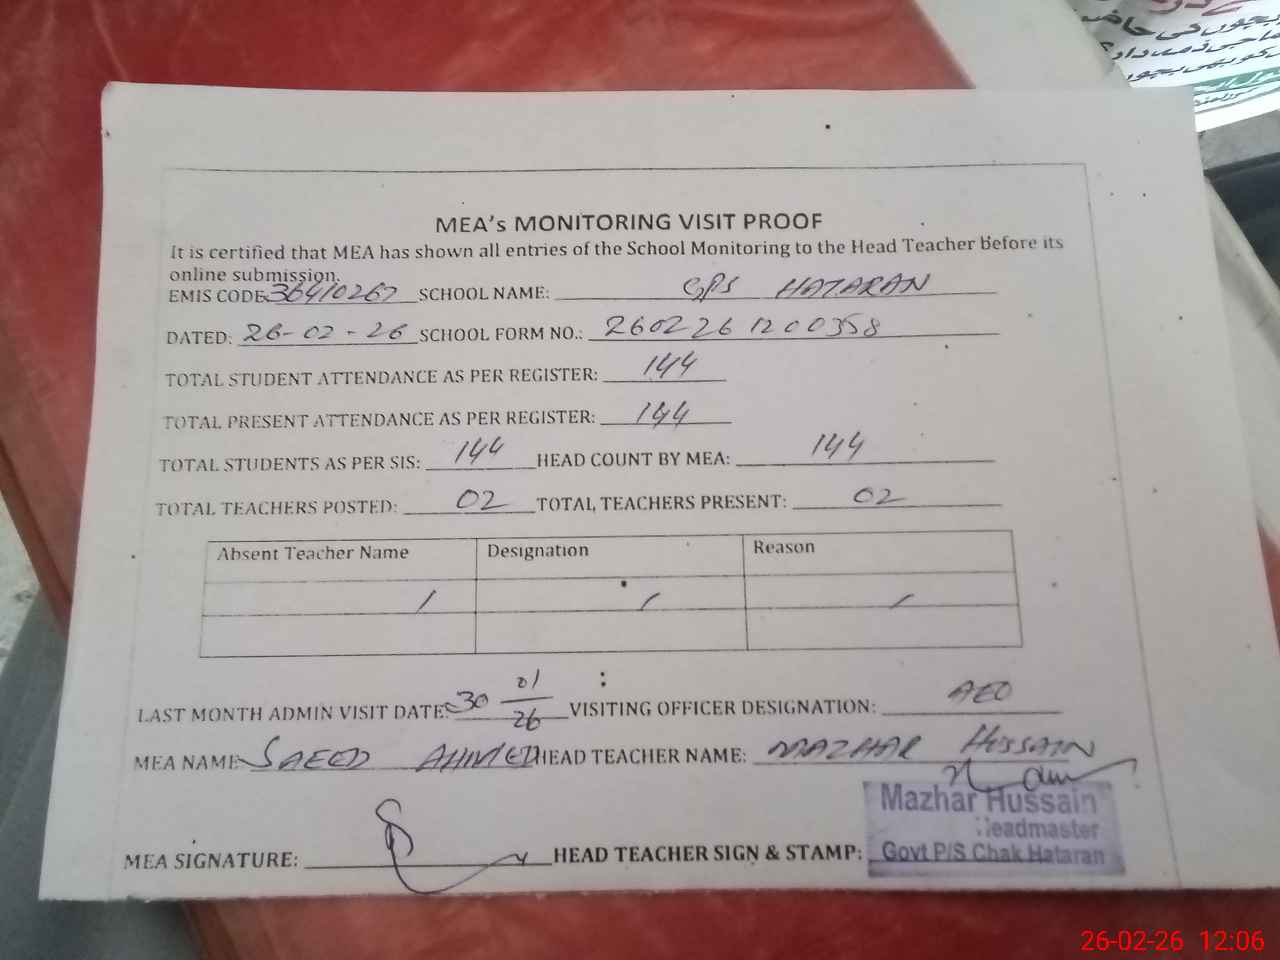 MEA's MONITORING VISIT PROOF
It is certified that MEA has shown all entries of the School Monitoring to the Head Teacher before its
online submission.
EMIS CODE 36410267 SCHOOL NAME: GPS HATARAN
DATED: 26-02-26 SCHOOL FORM NO.: 2602261200358
TOTAL STUDENT ATTENDANCE AS PER REGISTER: 144
TOTAL PRESENT ATTENDANCE AS PER REGISTER: 144
TOTAL STUDENTS AS PER SIS: 144 HEAD COUNT BY MEA: 144
TOTAL TEACHERS POSTED: 02 TOTAL TEACHERS PRESENT: 02
Absent Teacher Name Designation Reason
/ / /
LAST MONTH ADMIN VISIT DATE: 30 01/26 VISITING OFFICER DESIGNATION: AEO
MEA NAME: SAEED AHMED HEAD TEACHER NAME: MAZHAR HUSSAIN
MEA SIGNATURE: HEAD TEACHER SIGN & STAMP:
Mazhar Hussain
Headmaster
Govt P/S Chak Hataran
26-02-26 12:06